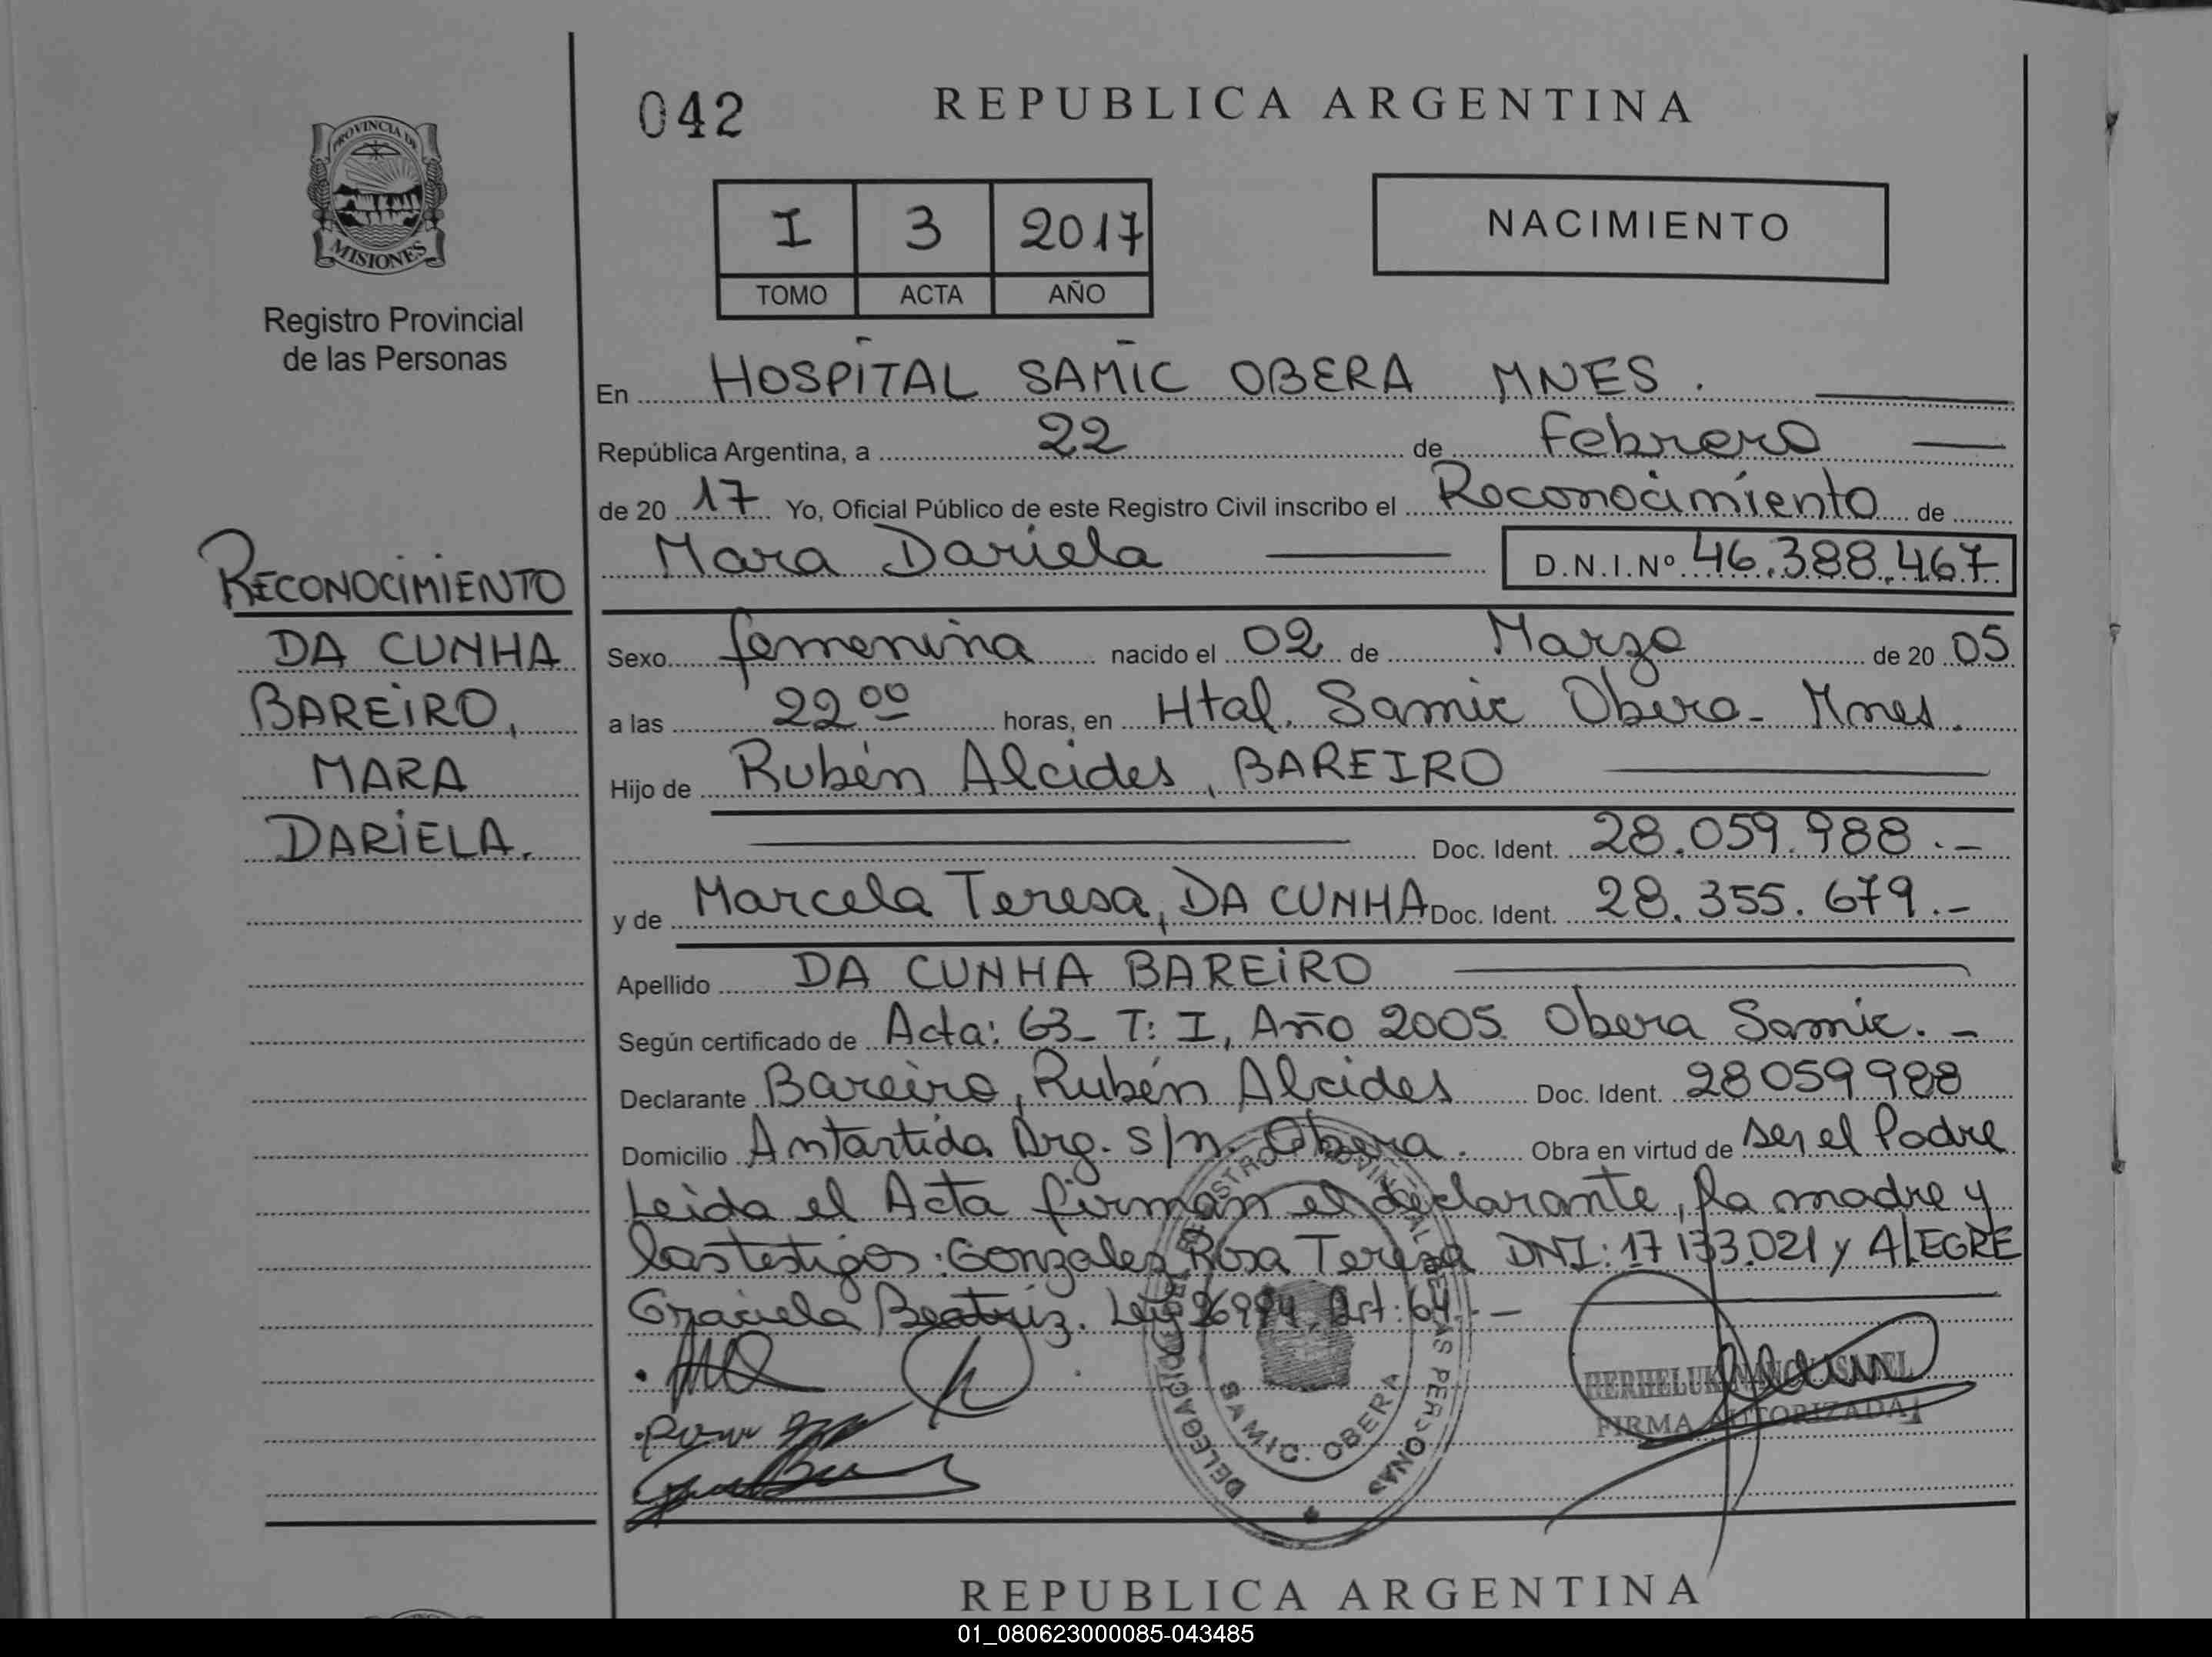 042
REPUBLICA ARGENTINA
PROVINCIA DE
MISIONES
Registro Provincial
de las Personas
I 3 2017
TOMO ACTA AÑO
NACIMIENTO
En HOSPITAL SAMIC OBERA MNES.
República Argentina, a 22 de Febrero
de 20 17 Yo, Oficial Público de este Registro Civil inscribo el Reconocimiento de
Mara Dariela D.N.I.Nº 46.388.467
RECONOCIMIENTO
DA CUNHA
BAREIRO,
MARA
DARIELA.
Sexo femenina nacido el 02 de Marzo de 20 05
a las 22 00 horas, en Htal. Samic Obera - Mnes.
Hijo de Rubén Alcides, BAREIRO
Doc. Ident. 28.059.988.-
y de Marcela Teresa, DA CUNHA Doc. Ident. 28.355.679.-
Apellido DA CUNHA BAREIRO
Según certificado de Acta: 63- T: I, Año 2005. Obera Samic. -
Declarante Bareiro, Rubén Alcides Doc. Ident. 28059988
Domicilio Antartida Arg. s/n. Obera. Obra en virtud de ser el Padre
Leida el Acta firman el declarante, la madre y
las testigos: Gonzalez Rosa Teresa DNI: 17 133.021 y ALEGRE
Graciela Beatriz. Ley 26994. Art: 64. -
FIRMA AUTORIZADA
DELEGACION
SAMIC. OBERA
REPUBLICA ARGENTINA
01_080623000085-043485